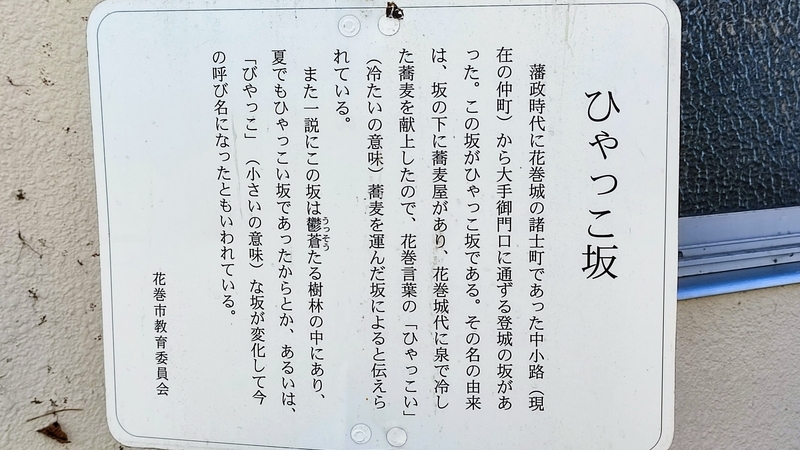 ひやっこ坂
藩政時代に花巻城の諸士町であった中小路（現
在の仲町）から大手御門口に通ずる登城の坂があ
った。この坂がひやっこ坂である。その名の由来
は、坂の下に蕎麦屋があり、花巻城代に泉で冷し
た蕎麦を献上したので、花巻言葉の「ひゃっこい」
（冷たいの意味）蕎麦を運んだ坂によると伝えら
れている。
また一説にこの坂は鬱蒼たる樹林の中にあり、
うっそう
夏でもひゃっこい坂であったからとか、あるいは、
「びやっこ」（小さいの意味）な坂が変化して今
の呼び名になったともいわれている。
花巻市教育委員会